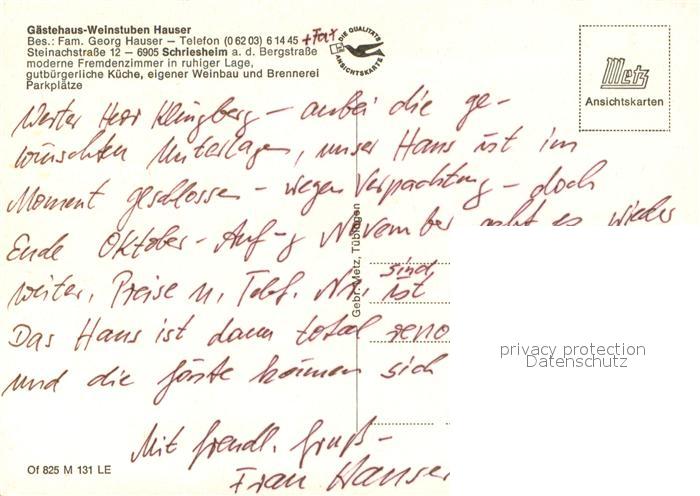 Gästehaus-Weinstuben Hauser
Bes.: Fam. Georg Hauser – Telefon (0 62 03) 6 14 45 + Fax
Steinachstraße 12 – 6905 Schriesheim a. d. Bergstraße
moderne Fremdenzimmer in ruhiger Lage,
gutbürgerliche Küche, eigener Weinbau und Brennerei
Parkplätze
DIE QUALITÄTS
ANSICHTSKARTE
Metz
Ansichtskarten
Werter Herr Klingberg – anbei die ge-
wünschten Unterlagen, unser Haus ist im
Moment geschlossen – wegen Verpachtung – doch
Ende Oktober – Anfg November geht es wieder
weiter. Preise u. Telef. Nr. ist
sind
Das Haus ist dann total reno
und die Gäste können sich
Mit freundl. Gruß –
Frau Hauser
Gebr. Metz, Tübingen
Of 825 M 131 LE
privacy protection
Datenschutz